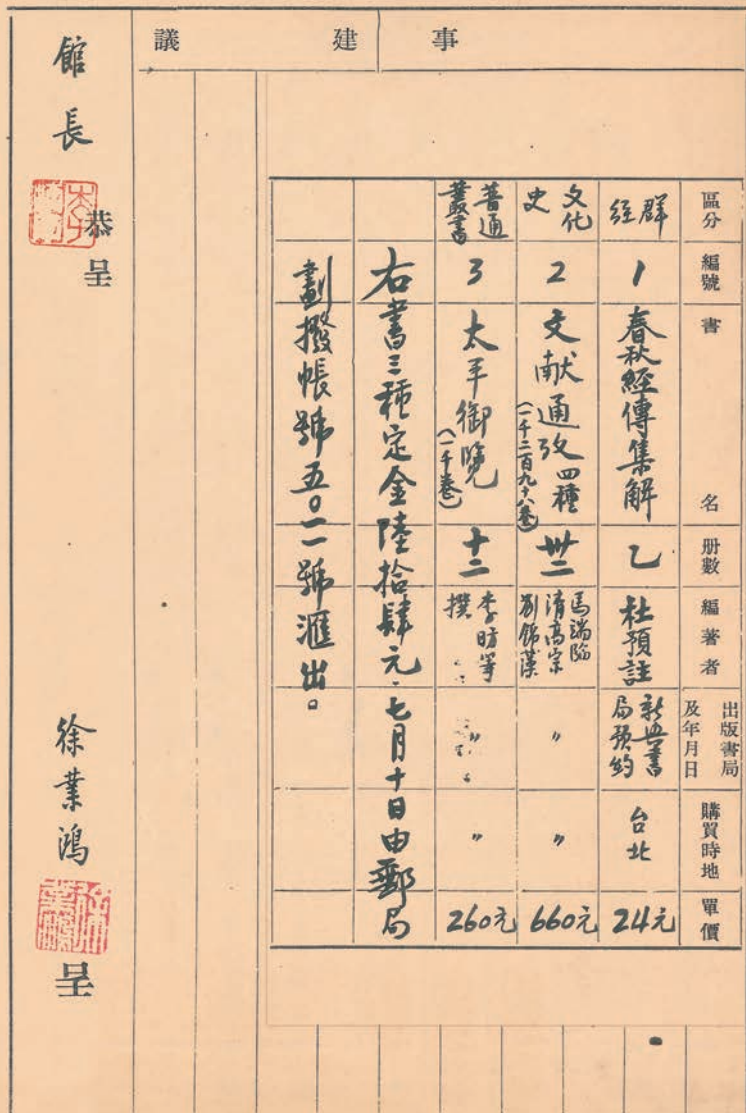 事建議
區分 編號 書名 册數 編著者 出版書局及年月日 購買時地 單價
群經 1 春秋經傳集解 乙 杜預註 新興書局預約 台北 24元
文化史 2 文献通攷四種(一千二百九十八卷) 卅二 馬端臨 清高宗 劉錦藻 〃 〃 660元
普通叢書 3 太平御覽(一千卷) 十二 李昉等撰 〃 〃 260元
右書三種定金陸拾肆元.七月十日由郵局
劃撥帳號五〇一一號滙出。
館長 恭呈
徐業鴻 呈